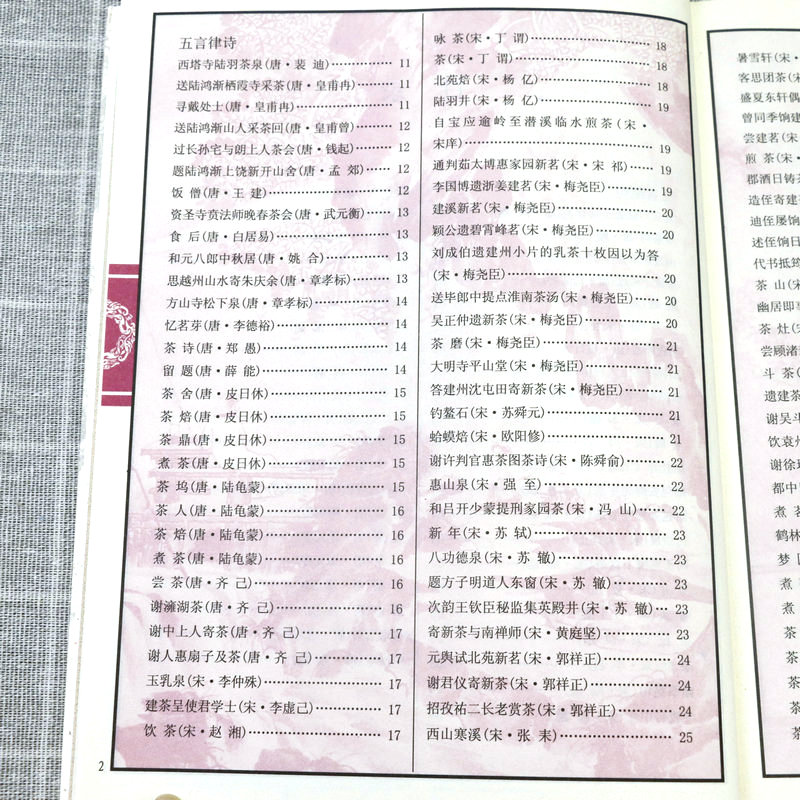 五言律诗
西塔寺陆羽茶泉(唐·裴 迪)…………… 11
送陆鸿渐栖霞寺采茶(唐·皇甫冉)……… 11
寻戴处士(唐·皇甫冉)………………… 11
送陆鸿渐山人采茶回(唐·皇甫曾)……… 12
过长孙宅与朗上人茶会(唐·钱起)……… 12
题陆鸿渐上饶新开山舍(唐·孟 郊)…… 12
饭 僧(唐·王 建)…………………… 12
资圣寺贲法师晚春茶会(唐·武元衡)…… 13
食 后(唐·白居易)…………………… 13
和元八郎中秋居(唐·姚 合)………… 13
思越州山水寄朱庆余(唐·章孝标)…… 13
方山寺松下泉(唐·章孝标)…………… 14
忆茗芽(唐·李德裕)………………… 14
茶 诗(唐·郑 愚)…………………… 14
留 题(唐·薛 能)…………………… 14
茶 舍(唐·皮日休)…………………… 15
茶 焙(唐·皮日休)…………………… 15
茶 鼎(唐·皮日休)…………………… 15
煮 茶(唐·皮日休)…………………… 15
茶 坞(唐·陆龟蒙)…………………… 15
茶 人(唐·陆龟蒙)…………………… 16
茶 焙(唐·陆龟蒙)…………………… 16
煮 茶(唐·陆龟蒙)…………………… 16
尝 茶(唐·齐 己)…………………… 16
谢㴩湖茶(唐·齐 己)………………… 16
谢中上人寄茶(唐·齐 己)…………… 17
谢人惠扇子及茶(唐·齐 己)………… 17
玉乳泉(宋·李仲殊)………………… 17
建茶呈使君学士(宋·李虚己)………… 17
饮 茶(宋·赵 湘)…………………… 17
咏 茶(宋·丁 谓)…………………… 18
茶(宋·丁 谓)………………………… 18
北苑焙(宋·杨 亿)…………………… 18
陆羽井(宋·杨 亿)…………………… 19
自宝应逾岭至潜溪临水煎茶(宋·
宋庠)………………………………… 19
通判茹太博惠家园新茗(宋·宋 祁)…… 19
李国博遗浙姜建茗(宋·梅尧臣)……… 19
建溪新茗(宋·梅尧臣)……………… 20
颖公遗碧霄峰茗(宋·梅尧臣)………… 20
刘成伯遗建州小片的乳茶十枚因以为答
(宋·梅尧臣)………………………… 20
送毕郎中提点淮南茶汤(宋·梅尧臣)… 20
吴正仲遗新茶(宋·梅尧臣)………… 20
茶 磨(宋·梅尧臣)………………… 21
大明寺平山堂(宋·梅尧臣)………… 21
答建州沈屯田寄新茶(宋·梅尧臣)…… 21
钓鳌石(宋·苏舜元)………………… 21
蛤蟆焙(宋·欧阳修)………………… 21
谢许判官惠茶图茶诗(宋·陈舜俞)…… 22
惠山泉(宋·强 至)………………… 22
和吕开少蒙提刑家园茶(宋·冯 山)…… 22
新 年(宋·苏 轼)…………………… 23
八功德泉(宋·苏 辙)………………… 23
题方子明道人东窗(宋·苏 辙)……… 23
次韵王钦臣秘监集英殿井(宋·苏 辙)… 23
寄新茶与南禅师(宋·黄庭坚)………… 23
元舆试北苑新茗(宋·郭祥正)………… 24
谢君仪寄新茶(宋·郭祥正)………… 24
招孜祐二长老赏茶(宋·郭祥正)……… 24
西山寒溪(宋·张 耒)………………… 25
2
暑雪轩(宋·
客思团茶(宋
盛夏东轩偶
曾同季饷建
尝建茗(宋·
煎 茶(宋·
郡酒日铸
造侄寄建
迪侄屡饷
述侄饷日
代书抵
茶 山(宋
幽居即
茶 灶(
尝顾渚
斗 茶(
遗建茶
谢吴斗
饮袁州
谢徐
都中
煮 茗
鹤林
梦
煮
煮
茶
茶
茶
茶
茶